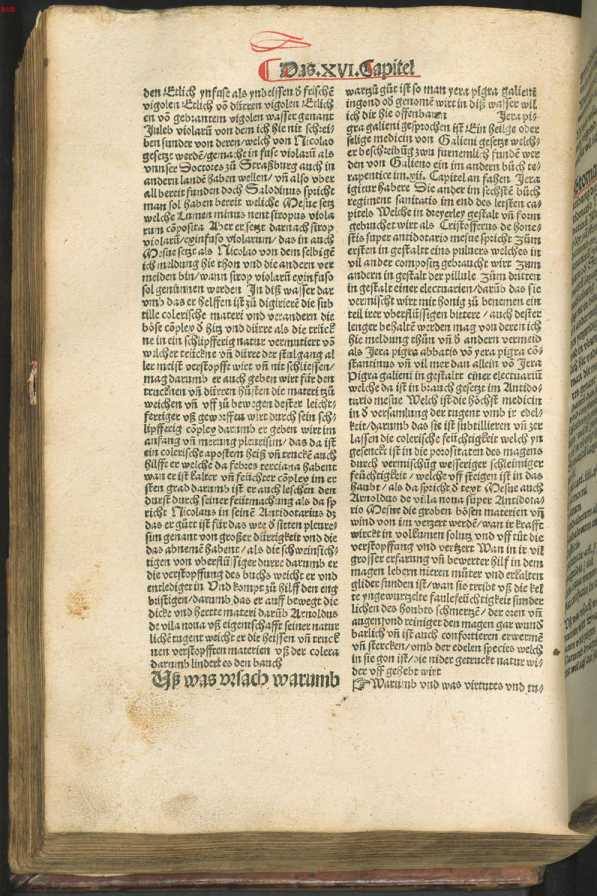 Das.XVI.Capitel
den Etlich ynfuse als ynbeissen ð frischē
vigolen Etlich vō dürren vigolen Etlich
en vō gebrantem vigolen wasser genant
Juleb violarū von dem ich hie nit schrei-
ben sunder von deren/welch von Nicolao
gesetzt werdē/gemacht in fuse violarū als
vnnser Doctores zů Straßburg auch in
andern landē haben wellen/vn̄ also vber
all bereit funden doch Saladinus spricht
man sol haben bereit weliche Mesue setzt
welche Lumen minus nent siropus viola
rum cōposita Aber er setzt darnach sirop
violarū/exinfuso violarum/das in auch
Mesue setzt als Nicolaus von dem selbigē
ich meldung hie thon vnd die andern ver
meiden bin/wann sirop violarū exinfuso
sol genummen werden Jn diß wasser dar
vmb das er helffen ist zů digirierē die sub
tille colerische materi vnd verandern die
böse cōpley ð hitz vnd dürre als die trück
ne in ein schlipfferig natur vermutiert vō
welcher trückne vn̄ dürre der stulgang al
ler meist verstopfft wirt vn̄ nit schliessen/
mag darumb er auch geben wirt für den
trucknen vn̄ dürren hůsten die materi zů
weichen vn̄ vff zů bewegen dester leicht-
fertiger vß geworffen wirt durch sein sch-
lipfferig cōpley darumb er geben wirt im
anfang vn̄ merung pleuresim/das da ist
ein colerische aposten heiß vn̄ truckē auch
hilfft er welche da febres terciana habent
wan er ist kalter vn̄ feüchter cōpley im er
sten grad darumb ist er auch leschen den
durst durch seiner feücmachung als da sp
richt Nicolaus in seinē Antidotarius dz
das er gůt ist für das wee ð seiten pleure-
sim genant von großer dürrigkeit vnd die
das abnemē habent/als die schwinsich-
tigen von vberflüssiger durre darumb er
die verstopffung des buchs weicht er vnd
entlediget in Vnd kompt zů hilff den eng
brüstigen/darumb das er auff bewegt die
dicke vnd hertte materi darūb Arnoldus
de villa noua vß eigenschafft seiner natur
lichē tugent weicht er die heissen vn̄ truck
nen verstopfften materien vß der colera
darumb lindert es den bauch
Uß was vrsach warumb
wartzů gůt ist so man yera pigra galieni
ingond ob genomē wirt in diß wasser wil
ich dir hie offenbaren Jera pi-
gra galieni gesprochen ist Ein heilge oder
selige medicin von Galieni gesetzt welch-
er beschreibūg zwů furnemlich fundē wer
den von Galieno ein im andern bůch te-
rapentice im.vii. Capitel an fahen Jera
igitur habere Die ander im sechstē bůch
regiment sanitatis im end des lersten ca-
pitels Welche in dreyerley gestalt vn̄ form
gebruchet wirt als Cristofferus de hone-
stis super antidotario mesue spricht Zům
ersten in gestalt eins puluers welches in
vil ander composiß gebraucht wirt Zům
andern in gestalt der pillule Zům dritten
in gestalt einer electuarien/darūb das sie
vermischt wirt mit honig zů benemen ein
teil irer vberflüssigen bittere/auch dester
lenger behaltē werden mag von deren ich
hie meldung thůn vn̄ ð andern vermeid
als Jera pigra abbatis vō yera pigra cō-
stantinus vn̄ vil mer dan allein vō Jera
Pigra galieni in gestaltt einer electuariū
welche da ist in brauch gesetzt im Antido-
tario mesue Welch ist die höchst medicin
in ð versamlung der tugent vmb ir edel-
keit/darumb das sie ist subtillieren vn̄ zer
lassen die colerische feüchtigkeit welch yn
gesenckt ist in die porositaten des magens
durch vermischūg wesseriger schleimiger
feüchtigkeit/welche vff steigen ist in das
haubt/als da spricht ð teyt Mesue auch
Arnoldus de villa noua super Antidota-
rio Mesue die groben bösen materien vn̄
wind von im verzert werdē/wan ir krafft
wirckt in volkumen solutz vnd vff tůt die
verstopffung vnd verzert Wan in ir vil
grosser erfarung vn̄ bewerter hilf in dem
magen lebern nieren můter vnd erkalten
glider funden ist/wan sie tribt vß die kel
te yngewurtzelte faule feüchtigkeit sunder
lichen des houbts schmertzē/der oren vn̄
augen/vnd reiniger den magen gar wund
barlich vn̄ ist auch confortieren erwermē
vn̄ stercken/vmb der edelen species welch
in sie gon ist/sie nider getruckt natur wi-
der vff gehebt wirt
Warumb vnd was virtutes vnd tu-